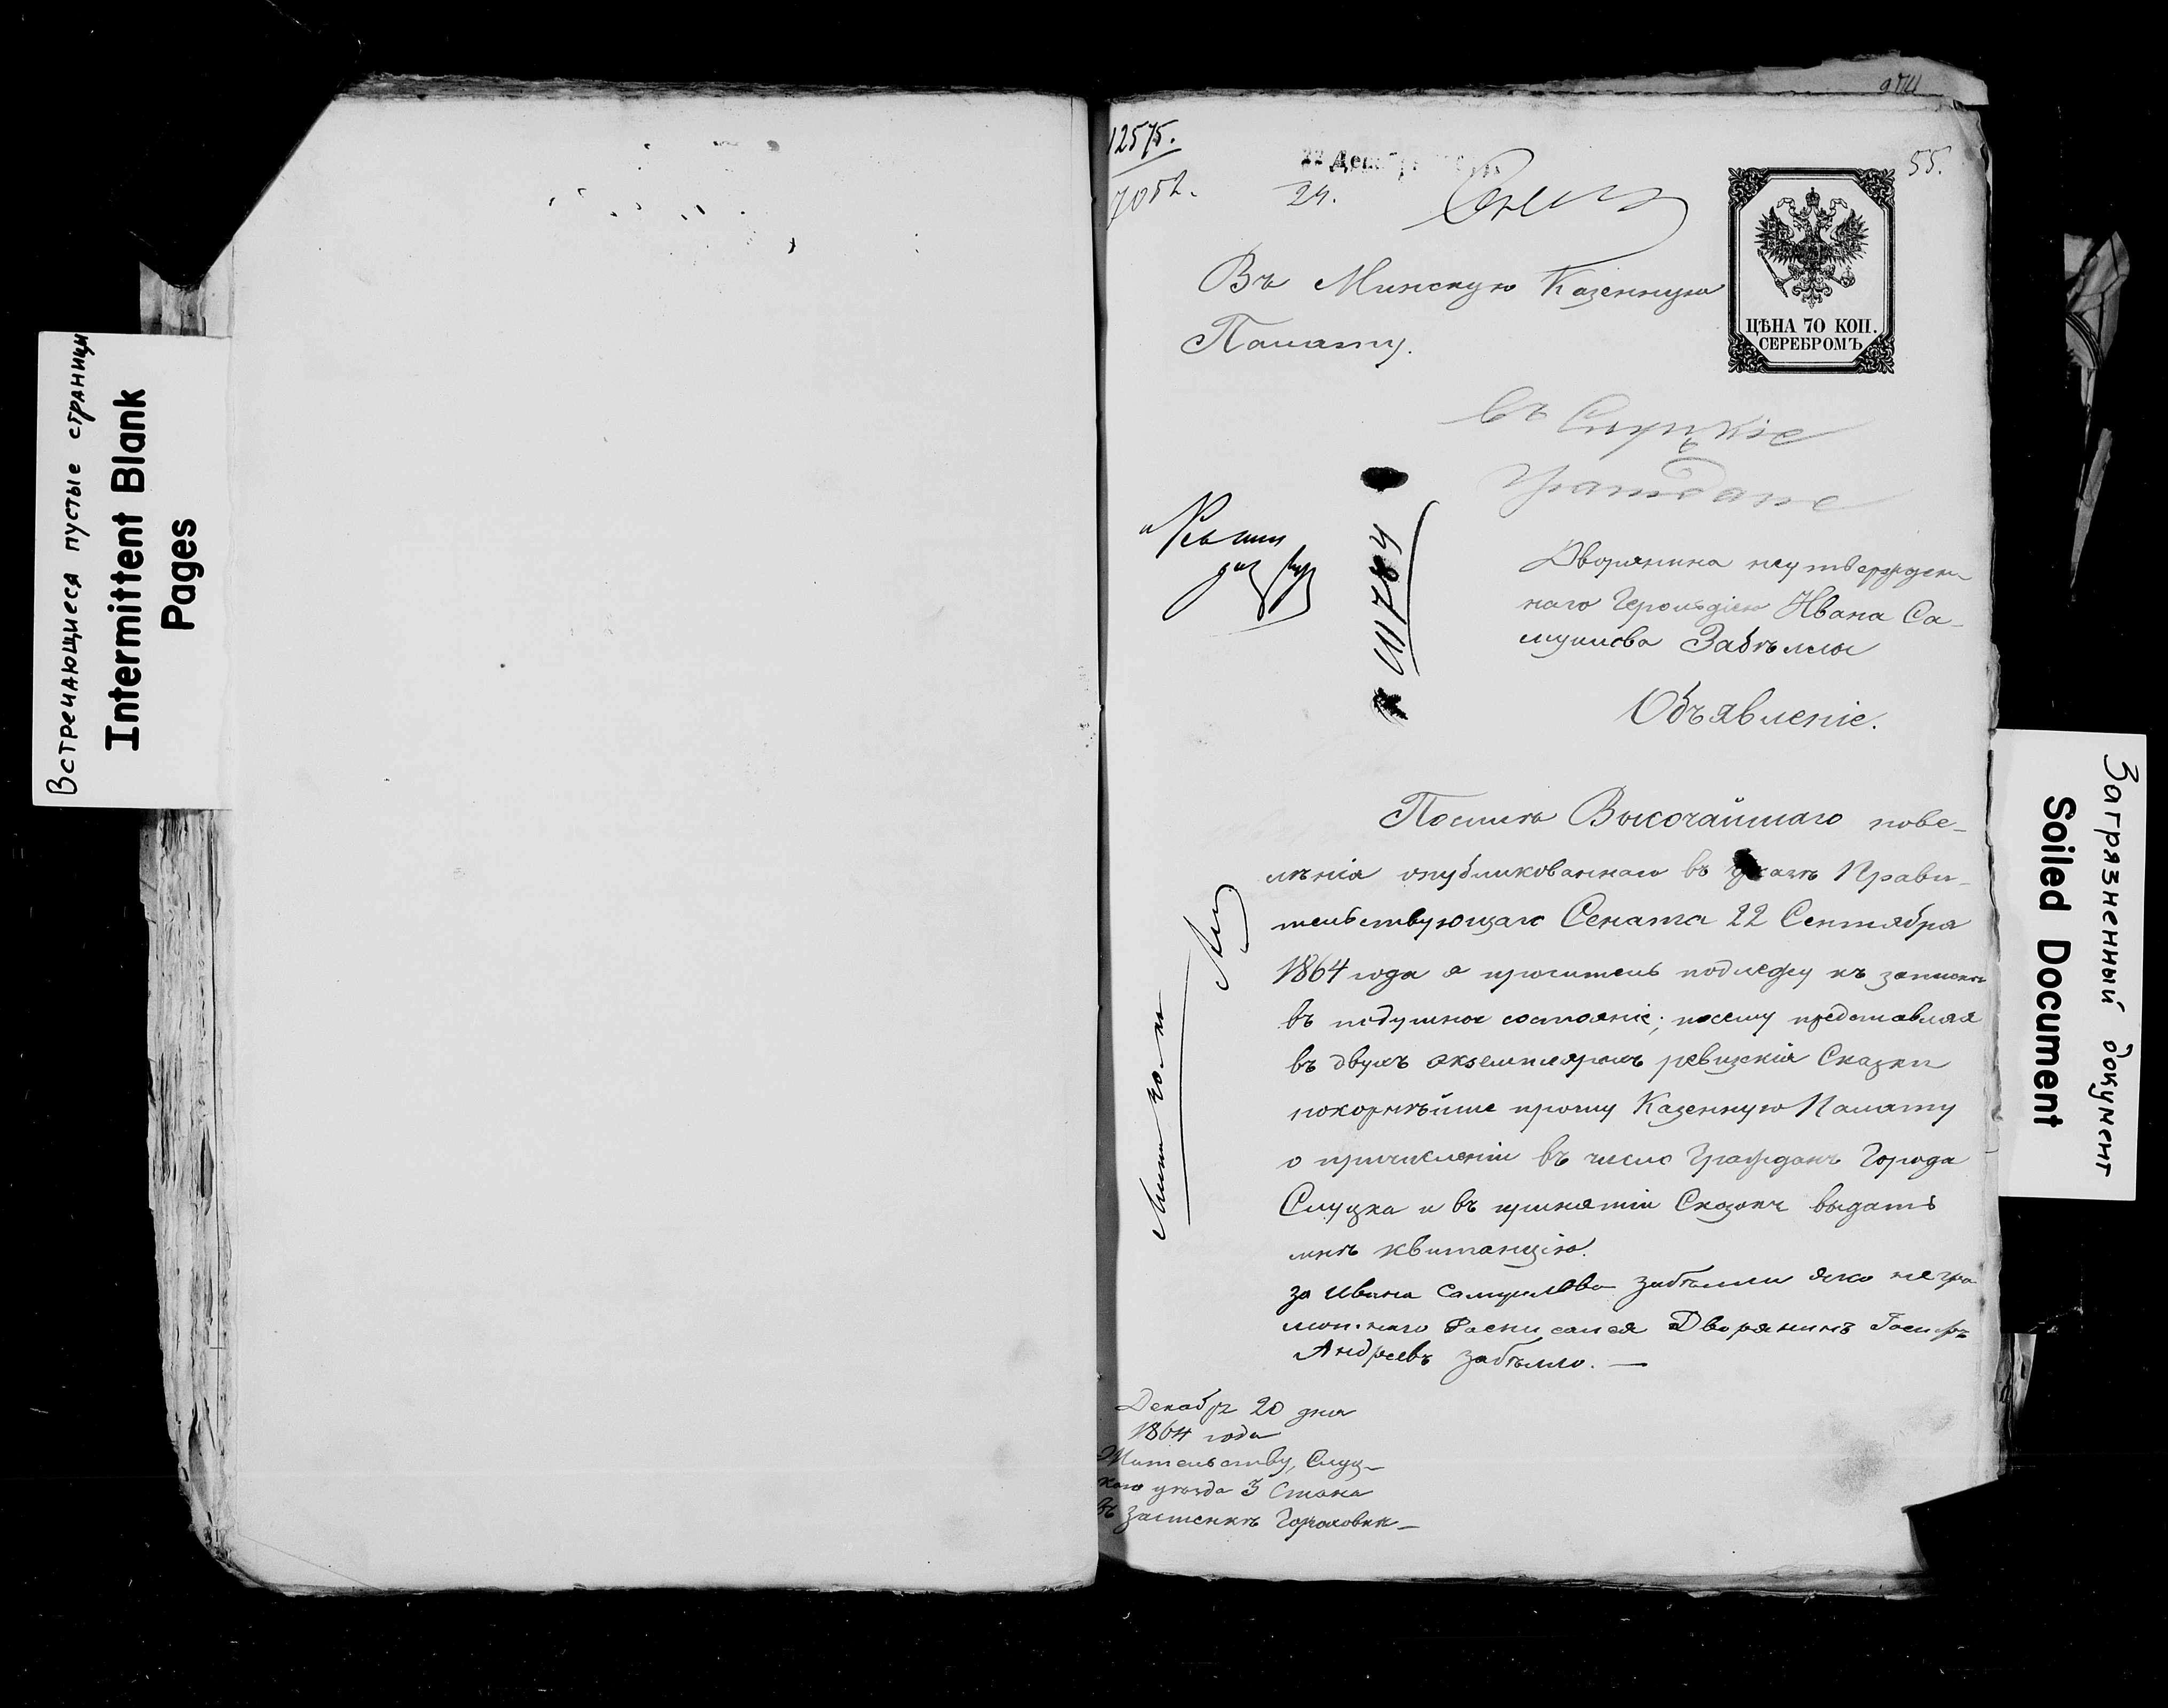 Встречающиеся пустые страници
Intermittent Blank
Pages
12575.
7052.
22
24.
55.
ЦѢНА 70 КОП.
СЕРЕБРОМЪ
Въ Минскую Казенную
Палату.
въ Слуцкіе
Граждане
11784
Дворянина неутвержден
наго Герольдіею Ивана Са-
муилова Забѣллы
Объявленіе.
Послѣ Высочайшаго пове-
лѣнія опубликованнаго въ Указѣ Прави-
тельствующаго Сената 22 Сентября
1864 года я проситель подлежу къ записки
въ подушное состояніе; посему представляя
въ двухъ экземплярахъ ревизскія Сказки
покорнѣйше прошу Казенную Палату
о причисленіи въ число Гражданъ Города
Слуцка и въ принятіи Сказокъ выдать
мнѣ квитанцію.
за Ивана Самуилова Забѣллы яко негра
мотнаго Росписался Дворянинъ
Андреевъ Забѣлло. —
Декабр 20 дня
1864 года
Жительству, Слуц-
каго уѣзда 3 Стана
въ застенкѣ
Загрязненный документ
Soiled Document